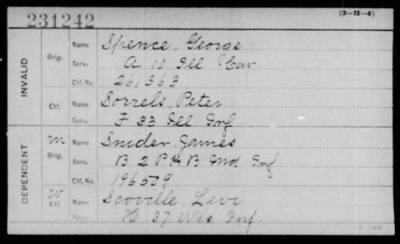 231242
(3-M-4)
INVALID
Orig. Name Spence, George
Serv. A 10 Ill Cav.
Ctf. No. 261363
Ctf. Name Sorrels, Peter
Serv. F 33 Ill Inf
DEPENDENT
M Orig. Name Snider, James
Serv. B 2 P.H.B Md Inf
Ctf. No. 196509
W Ctf. Name Scoville, Levi
Serv. H 37 Wis Inf